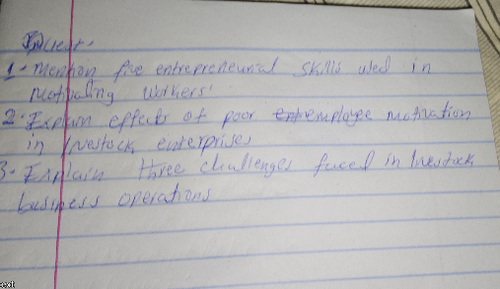 Quest.
1. Mention five entrepreneurial skills used in
motivating workers.
2. Explain effects of poor employee motivation
in livestock enterprises
3. Explain three challenges faced in livestock
business operations